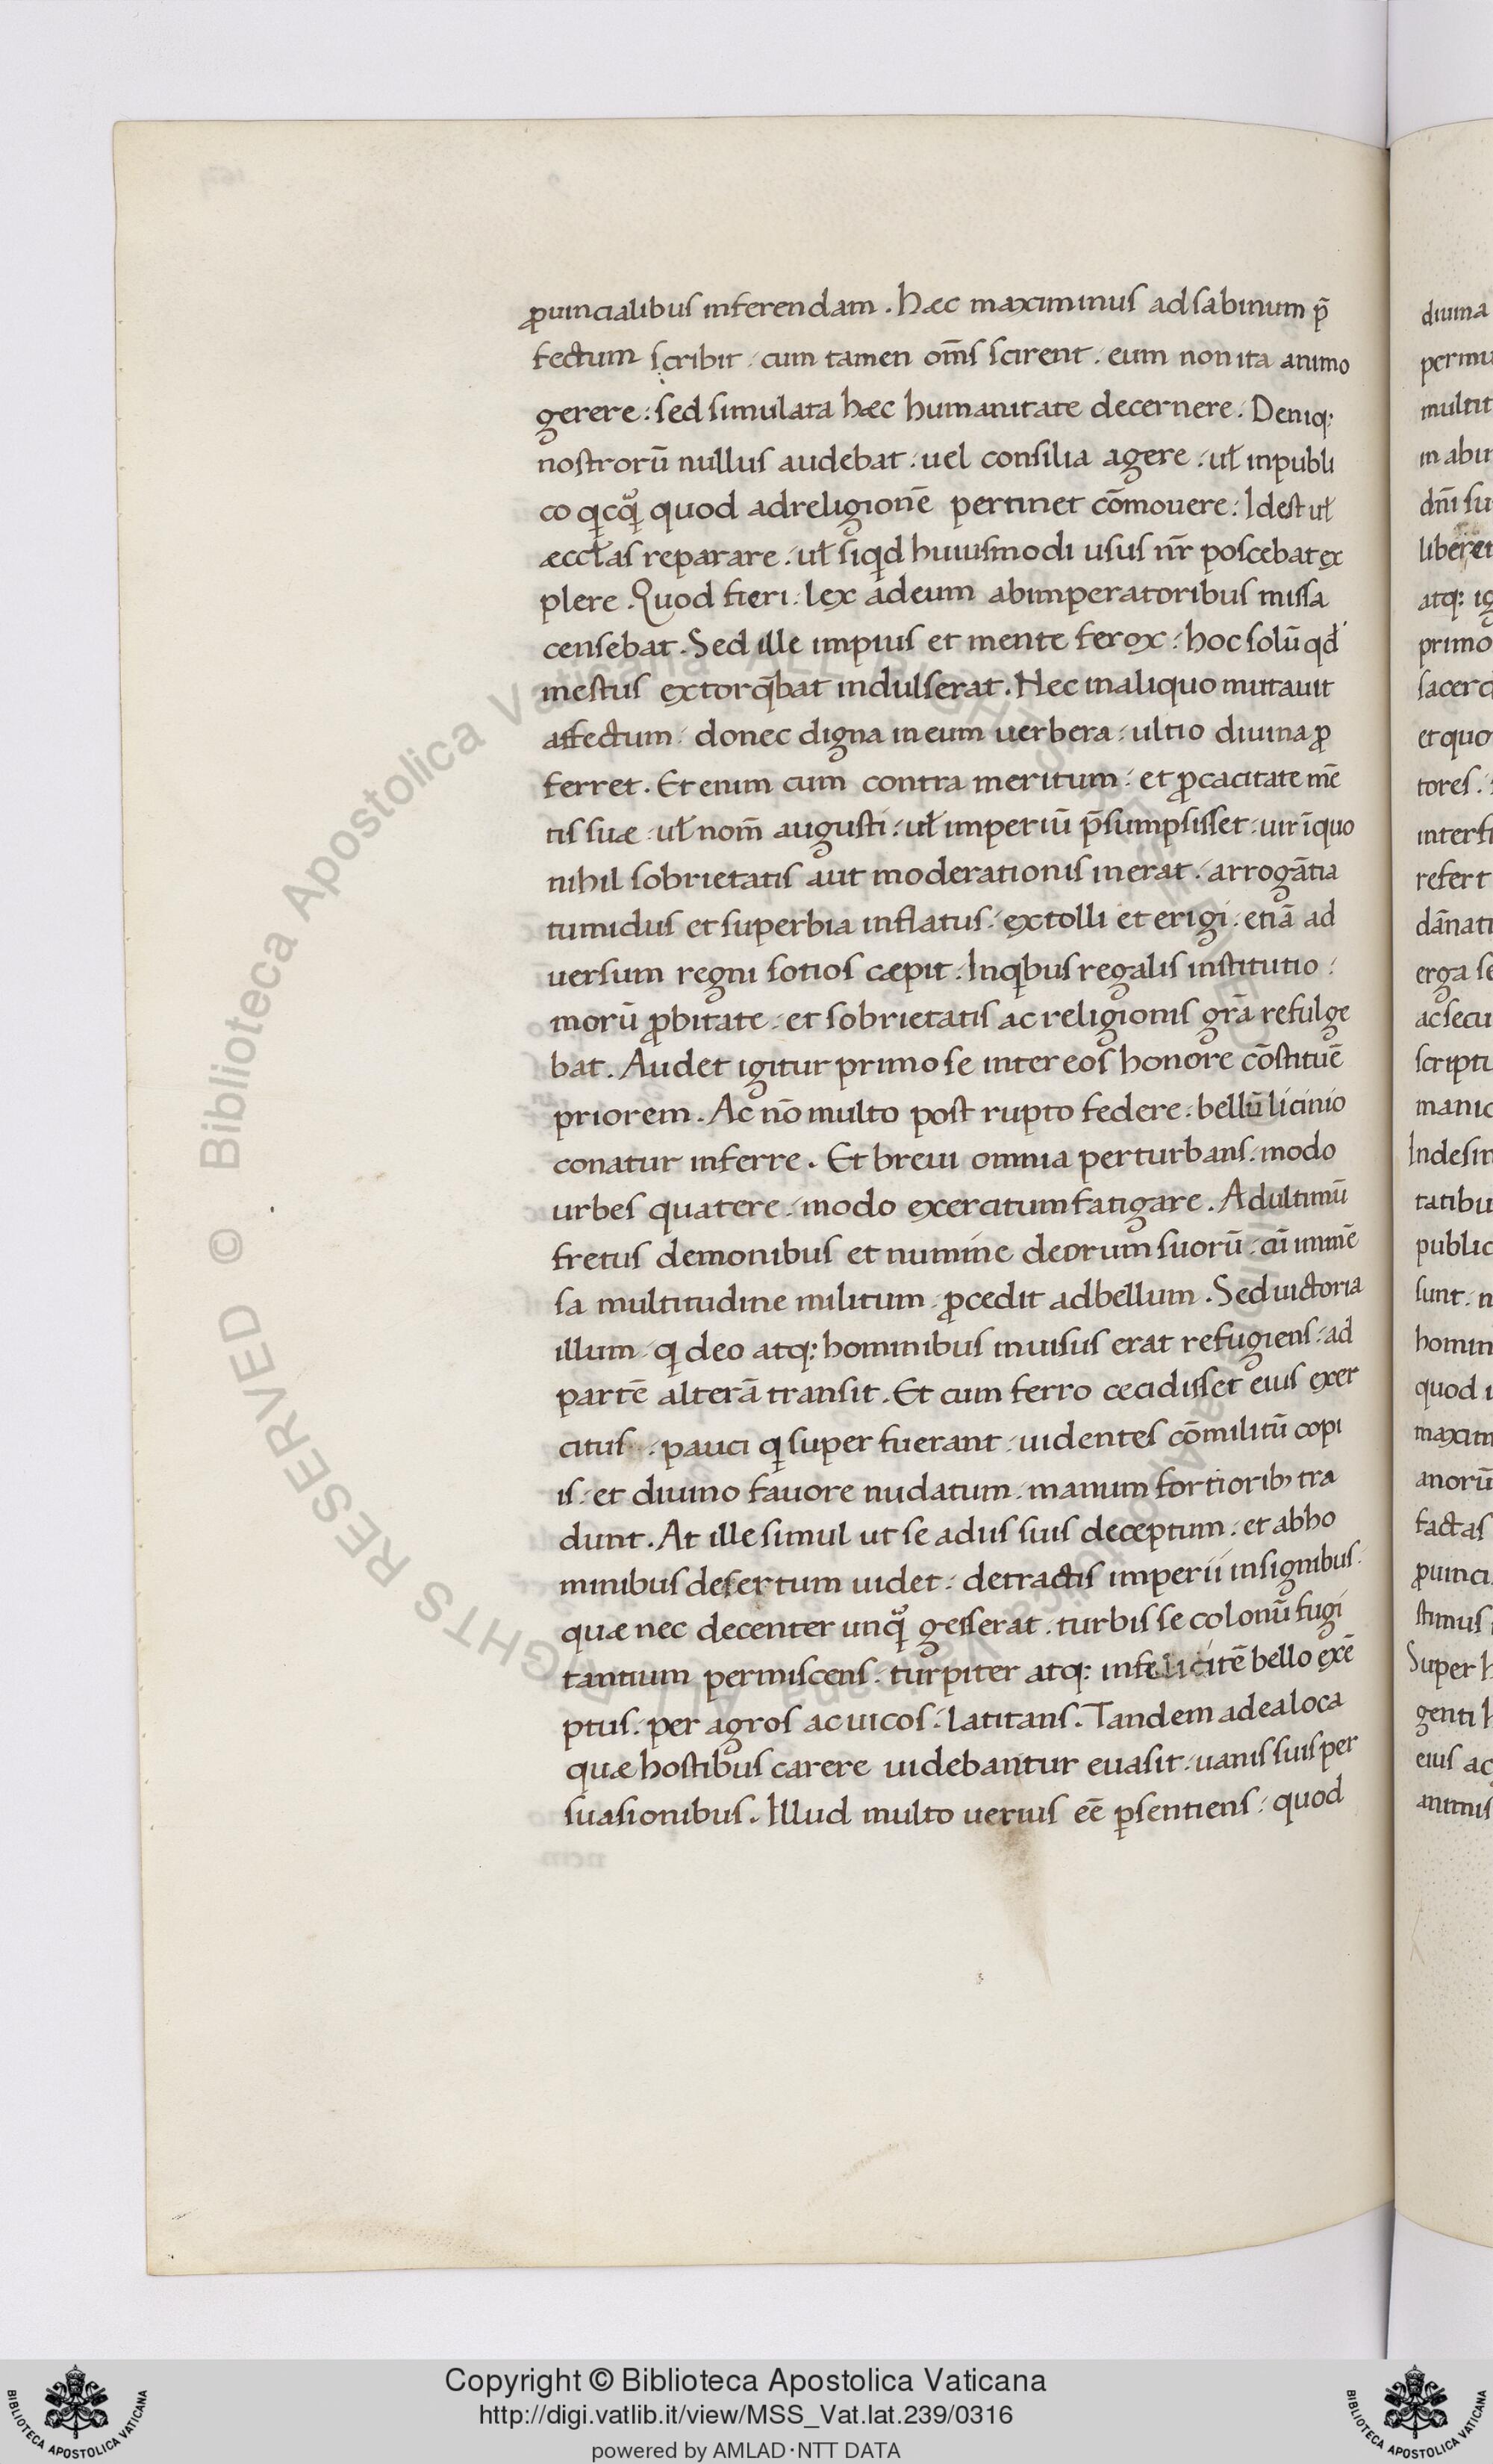 ꝓuincialibus inferendam. Hæc maximinus ad sabinum p̄
fectum scribit. cum tamen om̄s scirent. eum non ita animo
gerere: sed simulata hæc humanitate decernere. Deniq:
nostrorū nullus audebat. uel consilia agere. uł in publi
co qicq̊ quod ad religionē pertinet cōmouere: Id est uł
æccłas reparare. uł siqid huiusmodi usus nr̄ poscebat ex
plere. Quod fieri. lex ad eum ab imperatoribus missa
censebat. Sed ille impius et mente ferox: hoc solū qd'
mestus extorq̄bat indulserat. Nec in aliquo mutauit
affectum. donec digna in eum uerbera. ultio diuina ꝓ
ferret. Et enim cum contra meritum. et ꝓcacitate mē
tis suæ. uł nom̄ augusti. uł imperiū p̄sumpsisset. uir ī quo
nihil sobrietatis aut moderationis inerat. arrogātia
tumidus et superbia inflatus. extolli et erigi. etiā ad
uersum regni sotios cæpit. In qibus regalis institutio:
morū ꝓbitate. et sobrietatis ac religionis grā refulge
bat. Audet igitur primo se inter eos honore cōstituē
priorem. Ac nō multo post rupto federe. bellū licinio
conatur inferre. Et breui omnia perturbans. modo
urbes quatere. modo exercitum fatigare. Ad ultimū
fretus demonibus et numine deorum suorū. cū immē
sa multitudine militum. ꝓcedit ad bellum. Sed uictoria
illum. qi deo atq: hominibus inuisus erat refugiens. ad
partē alterā transit. Et cum ferro cecidisset eius exer
citus. pauci qi super fuerant. uidentes cōmilitū copi
is. et diuino fauore nudatum. manum fortiorib; tra
dunt. At ille simul ut se a diis suis deceptum. et ab ho
minibus desertum uidet. detractis imperii insignibus.
quæ nec decenter unq̊ gesserat. turbis se colonū fugi
tantium permiscens. turpiter atq: infelicitē bello exē
ptus. per agros ac uicos. latitans. Tandem ad ea loca
quæ hostibus carere uidebantur euasit. uanis suis per
suasionibus. Illud multo uerius eē ꝑsentiens. quod
diuina
permu
multit
dn̄i su
atq: ig
primo
et quo
tores.
refert
dānati
erga se
ac secu
scriptu
tatibu
public
sunt.
homin
quod
anorū
factas
ꝓuinci
stimus
Super h
genti
eius ac
animis
Biblioteca Apostolica Vaticana ALL RIGHTS RESERVED ©
BIBLIOTECA APOSTOLICA VATICANA
Copyright © Biblioteca Apostolica Vaticana
http://digi.vatlib.it/view/MSS_Vat.lat.239/0316
powered by AMLAD·NTT DATA
BIBLIOTECA APOSTOLICA VATICANA